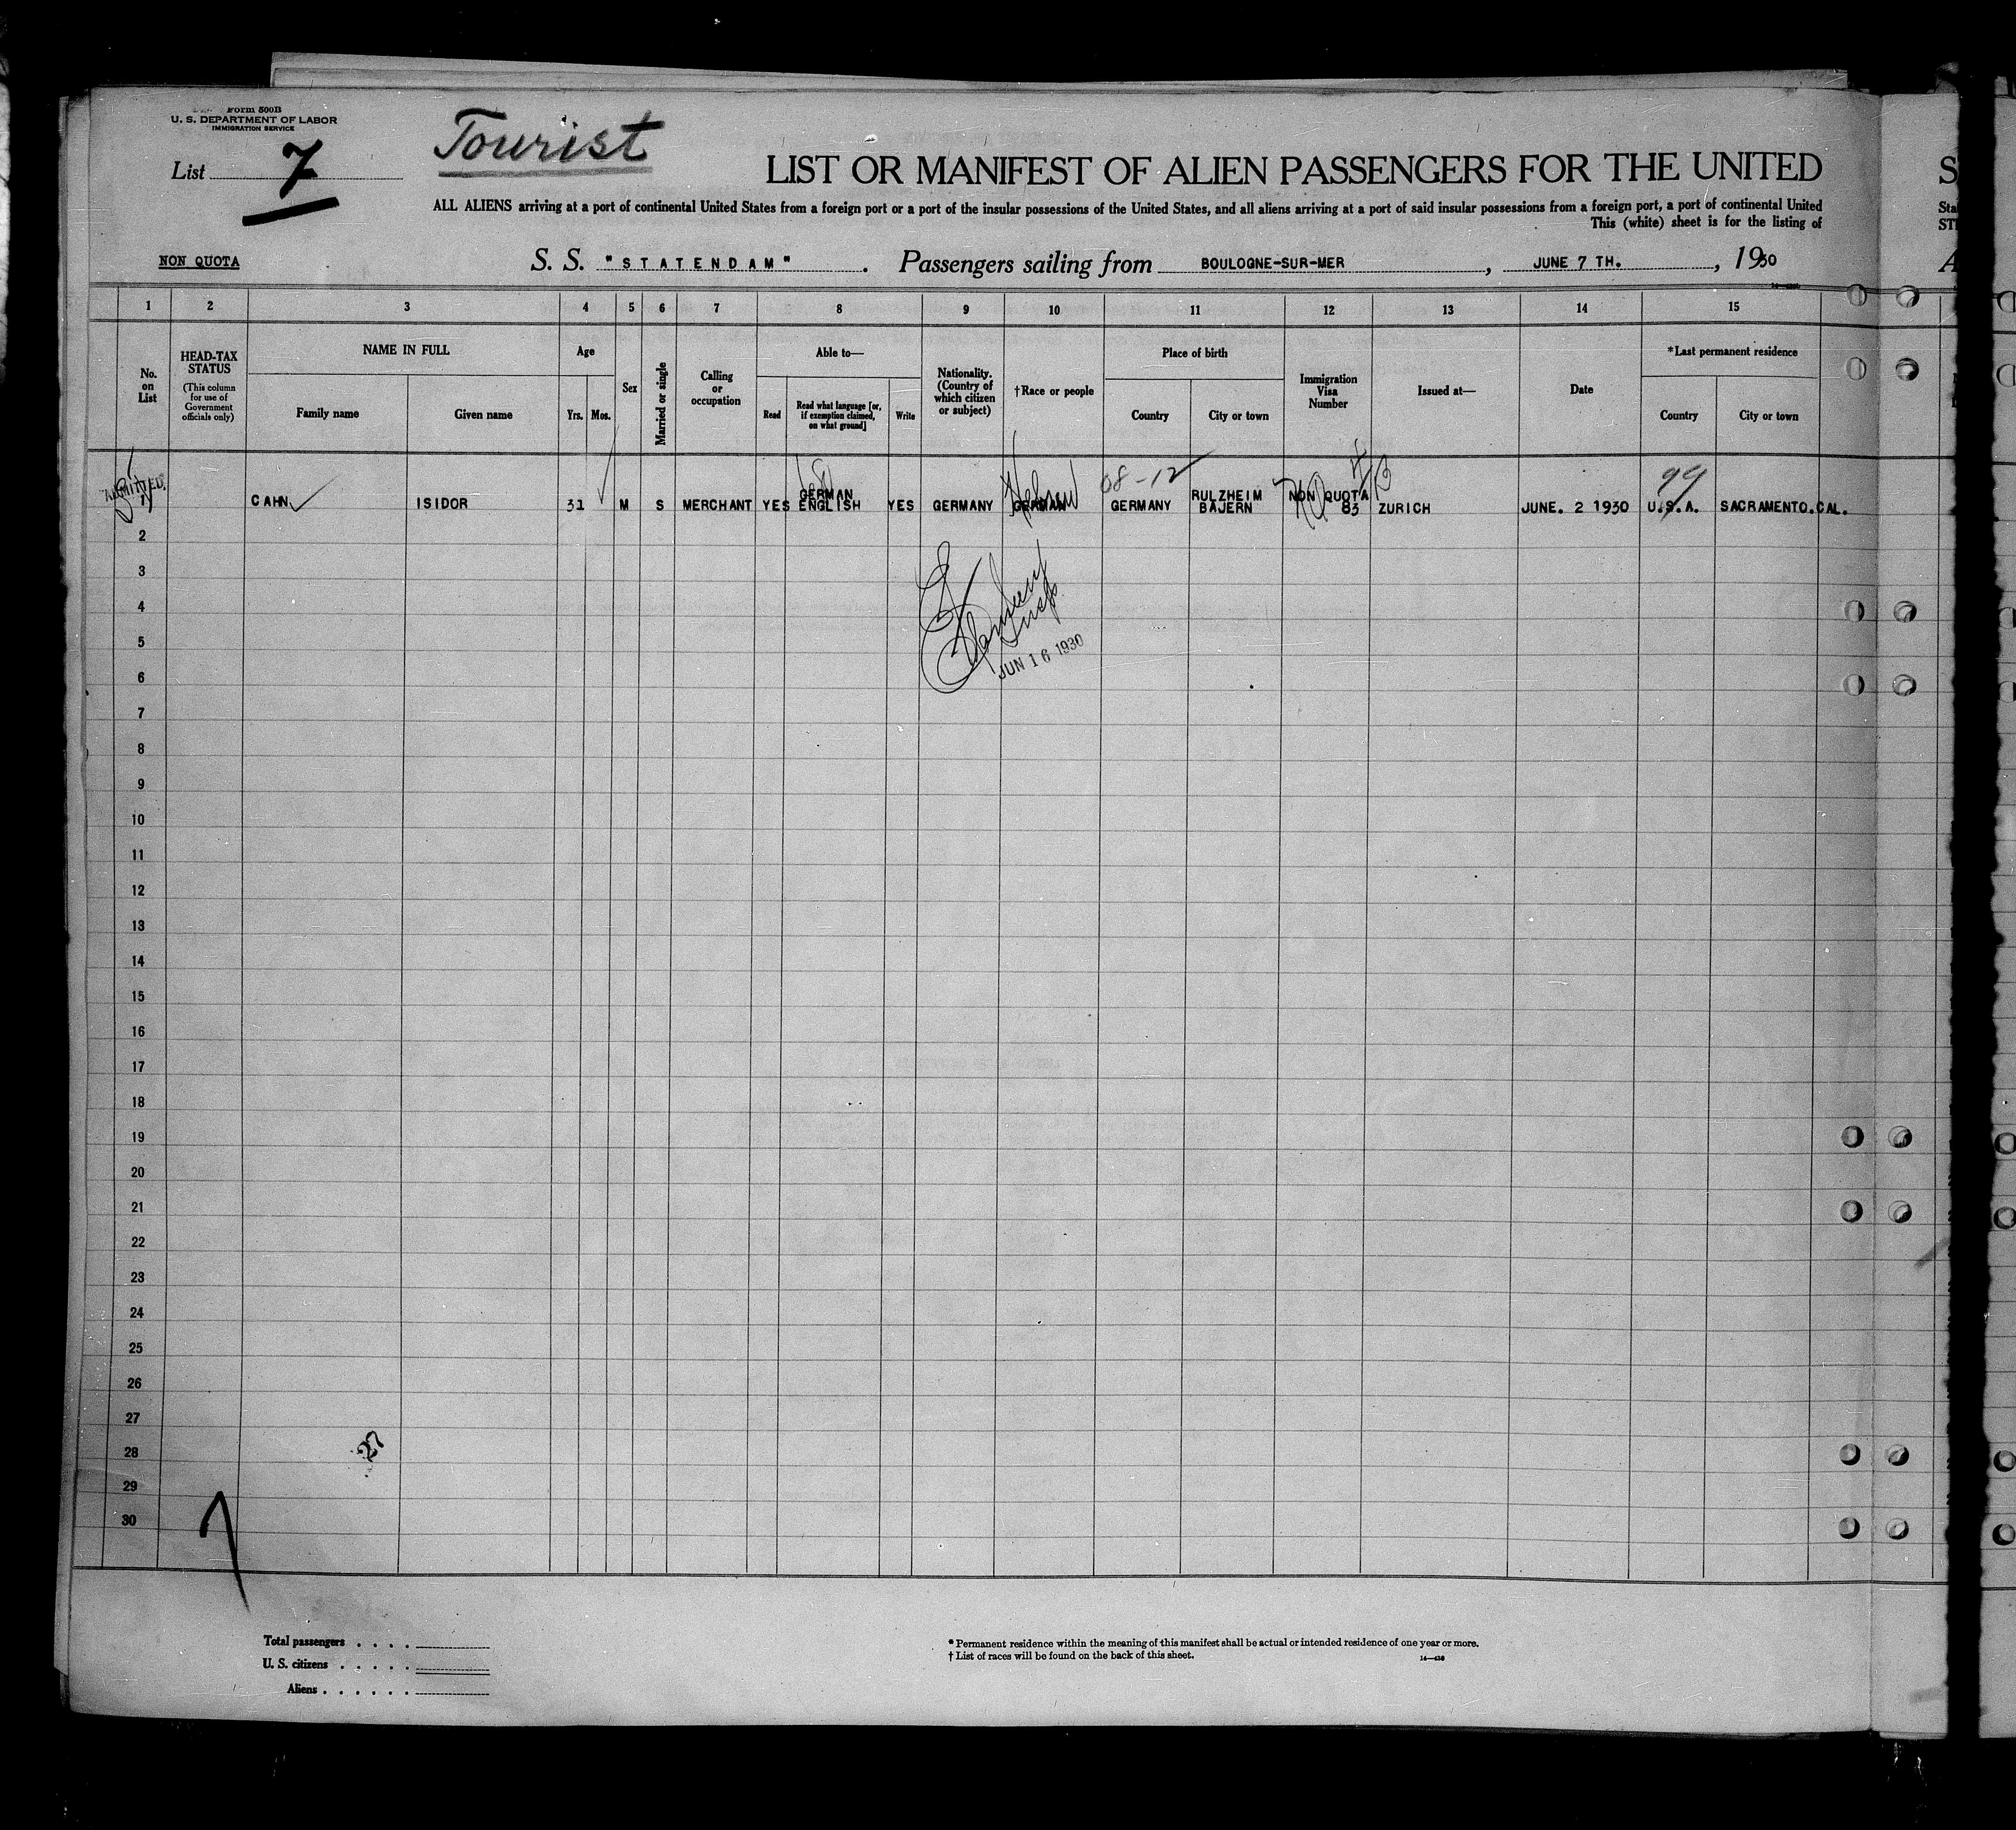 Form 500B
U. S. DEPARTMENT OF LABOR
IMMIGRATION SERVICE
List 7
Tourist
LIST OR MANIFEST OF ALIEN PASSENGERS FOR THE UNITED
ALL ALIENS arriving at a port of continental United States from a foreign port or a port of the insular possessions of the United States, and all aliens arriving at a port of said insular possessions from a foreign port, a port of continental United
This (white) sheet is for the listing of
NON QUOTA
S. S. "STATENDAM". Passengers sailing from BOULOGNE-SUR-MER, JUNE 7 TH., 1930
1 2 3 4 5 6 7 8 9 10 11 12 13 14 15
No. on List
HEAD-TAX STATUS
(This column for use of Government officials only)
NAME IN FULL
Family name
Given name
Age
Yrs.
Mos.
Sex
Married or single
Calling or occupation
Able to—
Read
Read what language [or, if exemption claimed, on what ground]
Write
Nationality. (Country of which citizen or subject)
†Race or people
Place of birth
Country
City or town
Immigration Visa Number
Issued at—
Date
*Last permanent residence
Country
City or town
ADMITTED.
08-12
99
Hebrew
1 CAHN ISIDOR 31 M S MERCHANT YES GERMAN ENGLISH YES GERMANY GERMAN GERMANY RULZHEIM BAJERN NON QUOTA 83 ZURICH JUNE. 2 1930 U.S.A. SACRAMENTO.CAL.
2
3
4
5
JUN 16 1930
6
7
8
9
10
11
12
13
14
15
16
17
18
19
20
21
22
23
24
25
26
27
27
28
29
30
Total passengers . . . .
U. S. citizens . . . . .
Aliens . . . . . .
* Permanent residence within the meaning of this manifest shall be actual or intended residence of one year or more.
† List of races will be found on the back of this sheet.